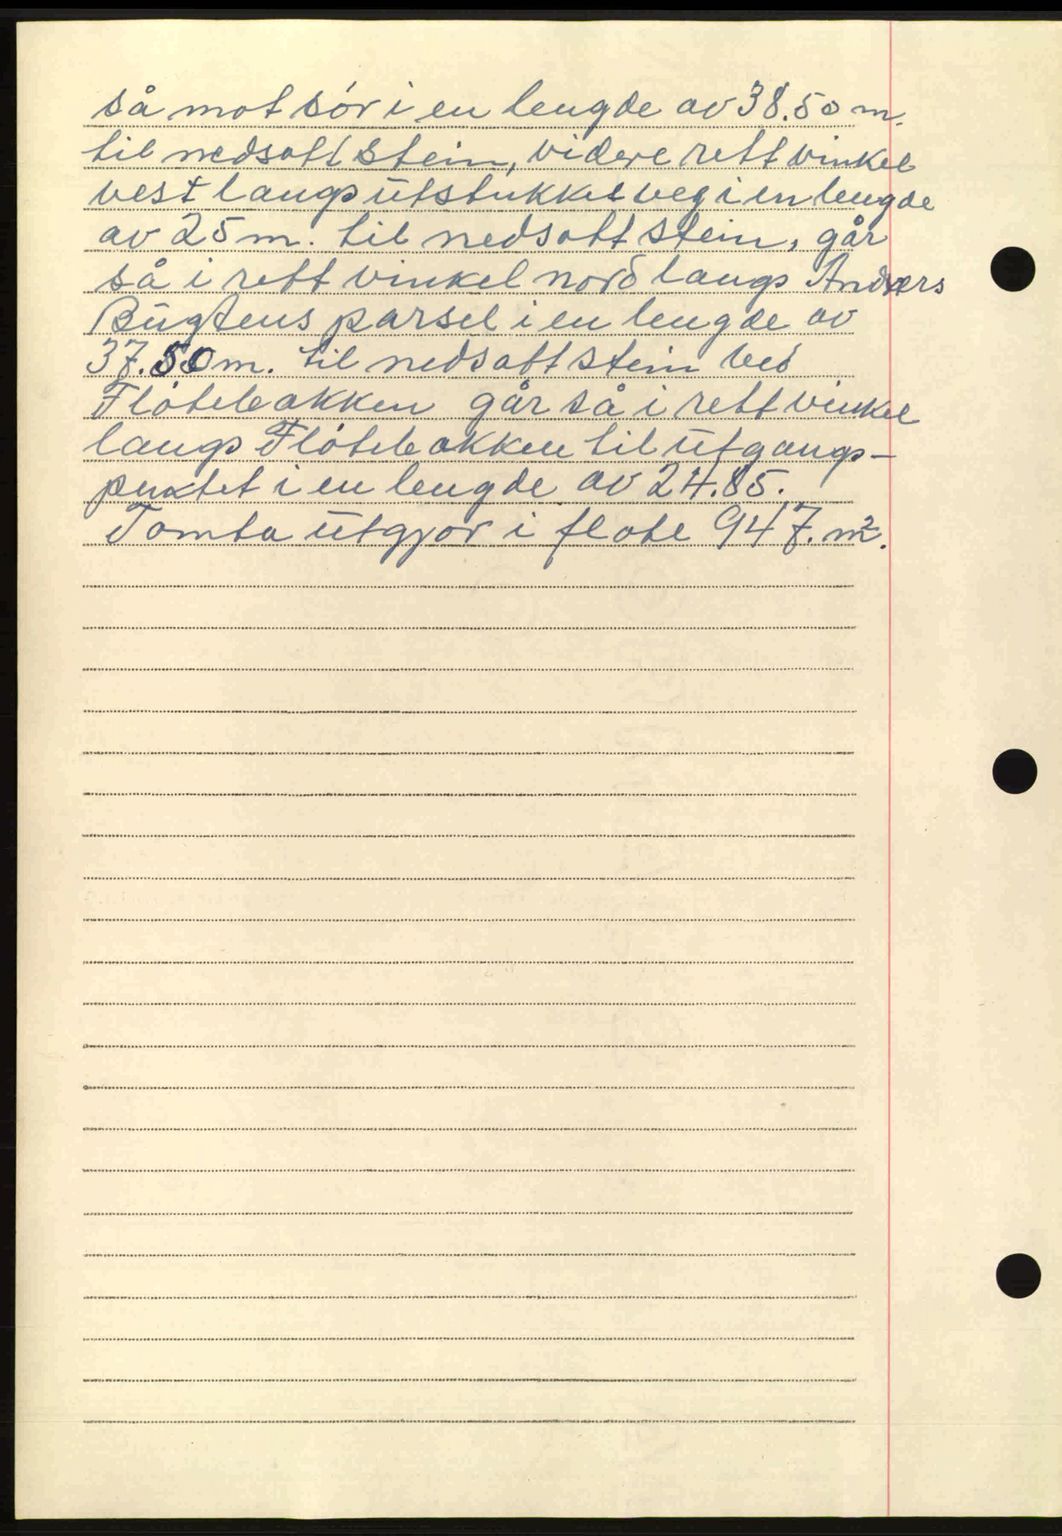 så mot sör i en lengde av 38.50 m.
til nedsatt stein, videre rett vinkel
vest langs utstukket veg i en lengde
av 25 m. til nedsatt stein, går
så i rett vinkel nord langs Anders
Bugtens parsel i en lengde av
37.50 m. til nedsatt stein ved
Flötebakken går så i rett vinkel
langs Flötebakken til utgangs-
punktet i en lengde av 24.85.
Tomta utgjör i flate 947. m².